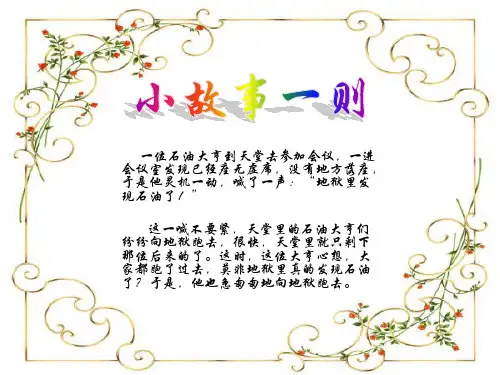 小故事一则
一位石油大亨到天堂去参加会议，一进
会议室发现已经座无虚席，没有地方落座，
于是他灵机一动，喊了一声：“地狱里发
现石油了！”
这一喊不要紧，天堂里的石油大亨们
纷纷向地狱跑去，很快，天堂里就只剩下
那位后来的了。这时，这位大亨心想，大
家都跑了过去，莫非地狱里真的发现石油
了？于是，他也急匆匆地向地狱跑去。